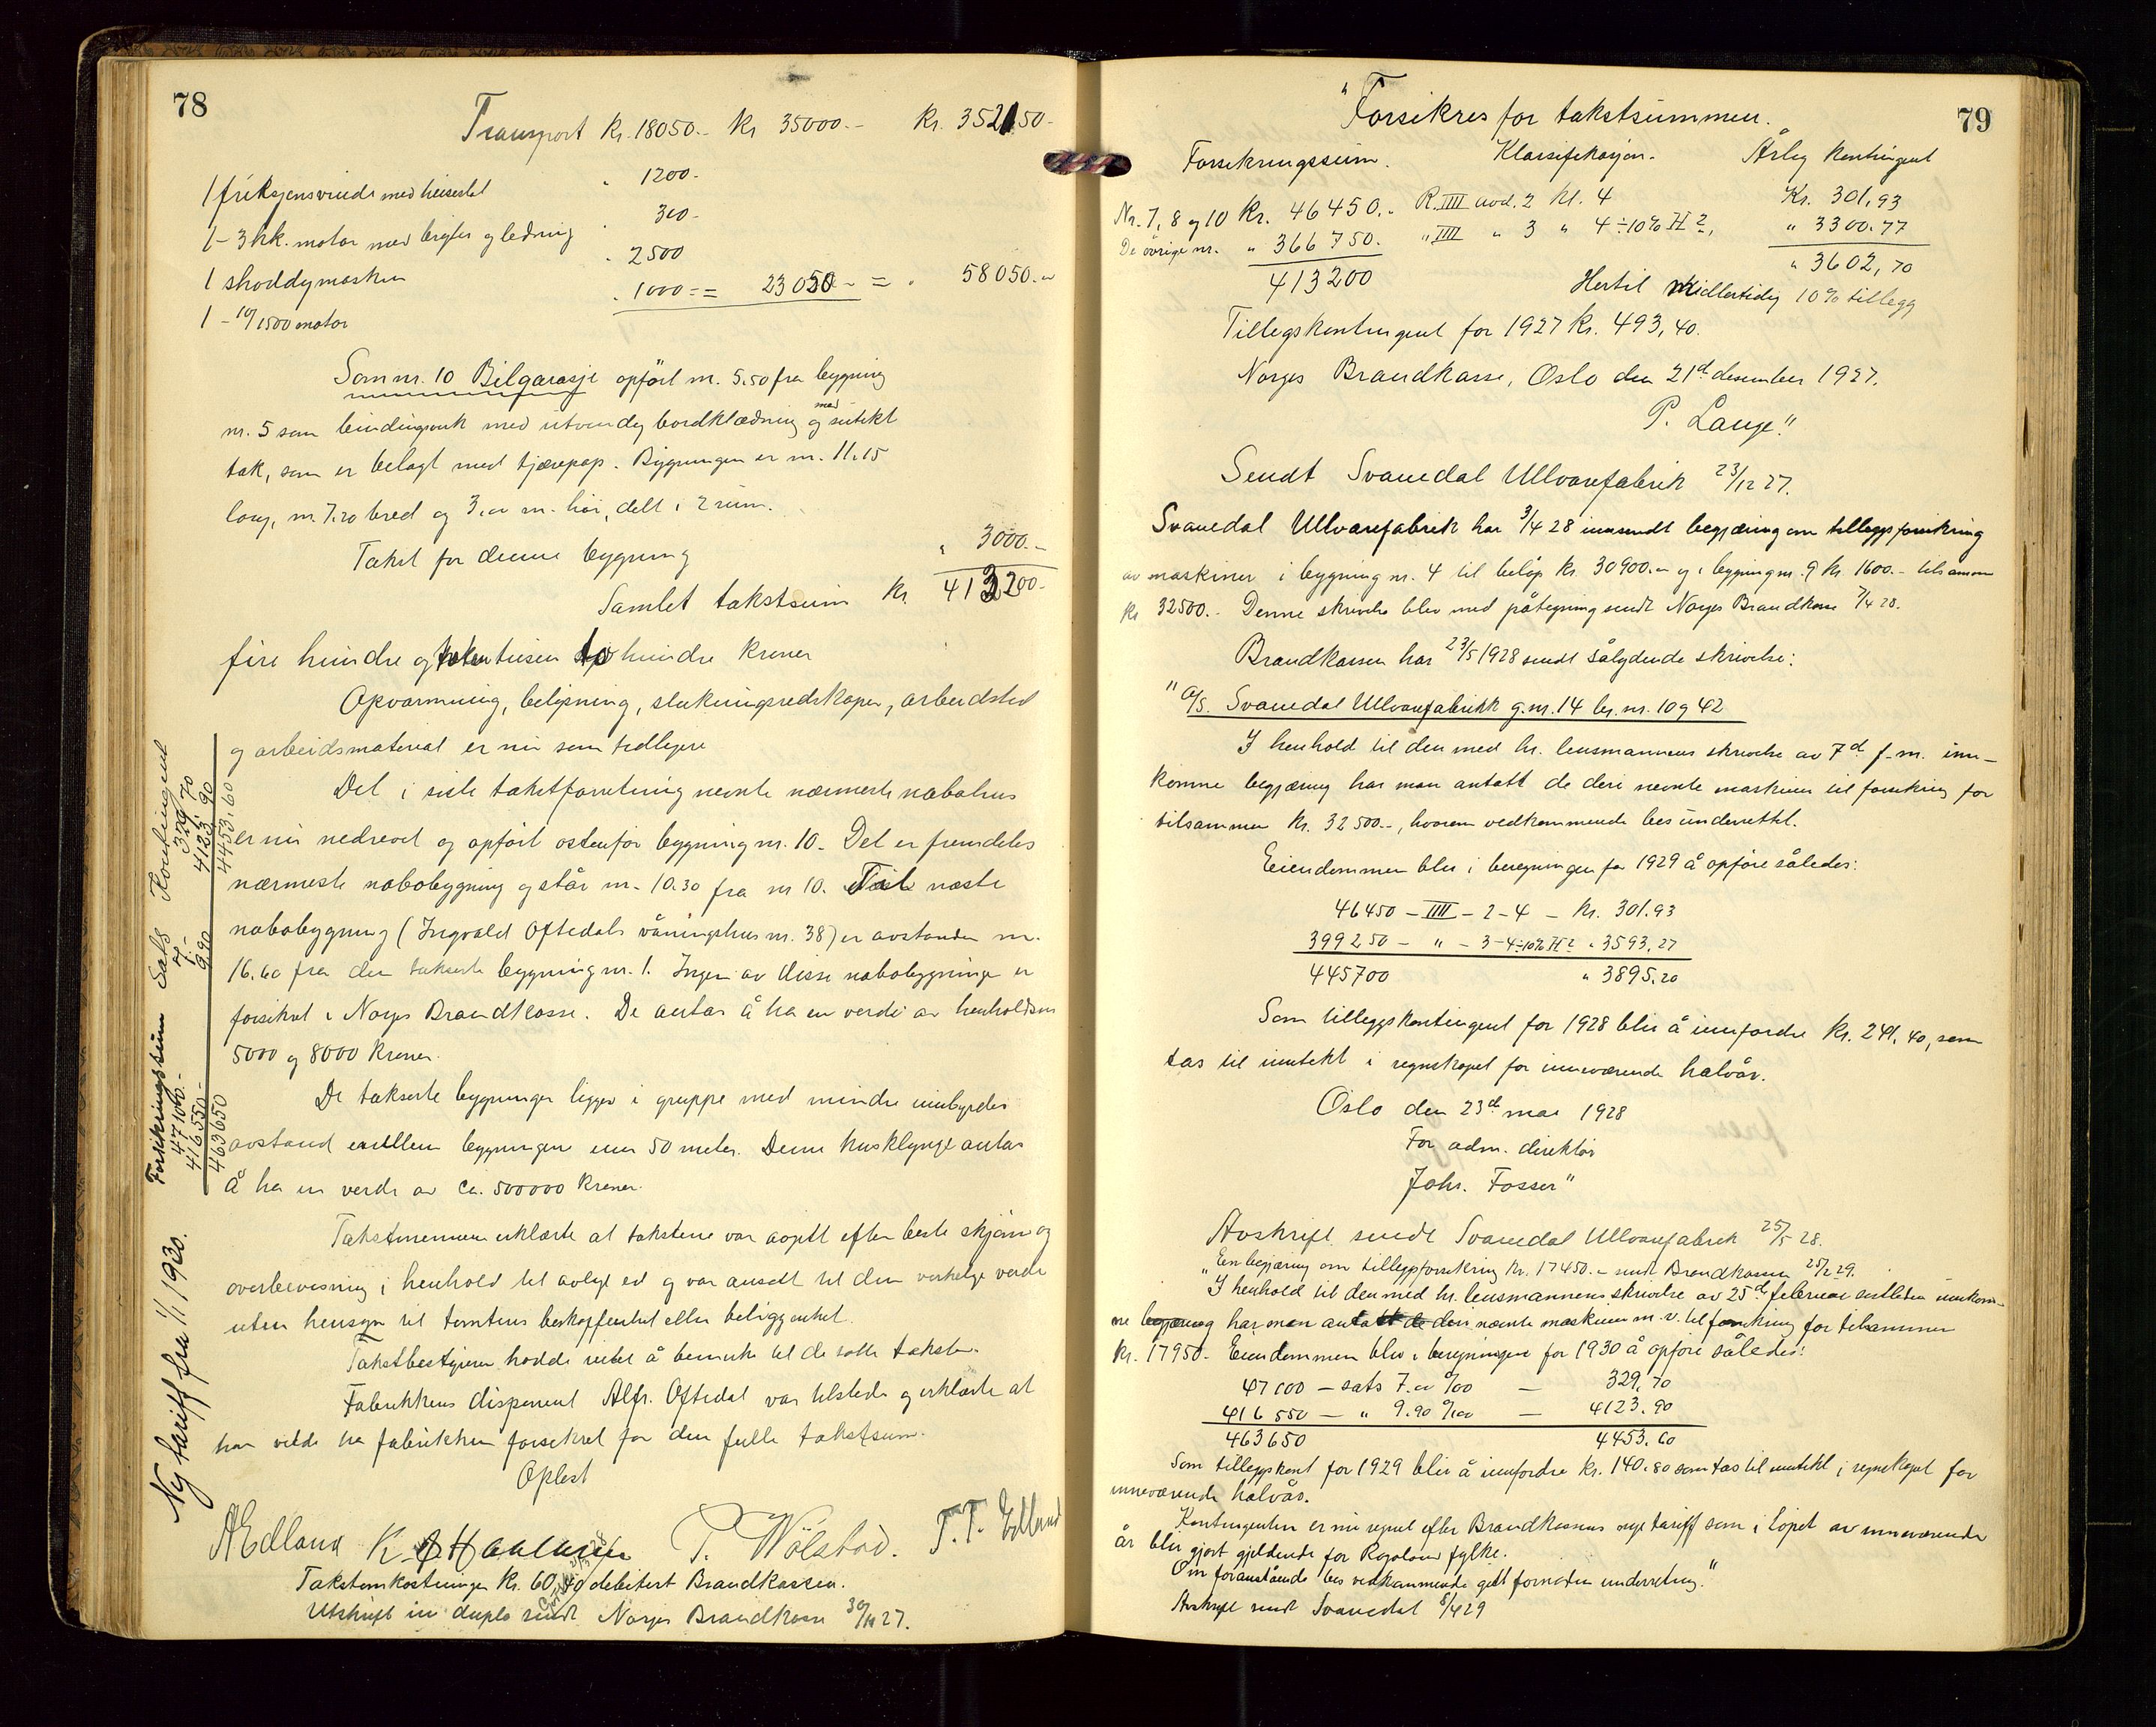 78
Transport Kr. 18050.- Kr 35000.- Kr. 352150-
1 friksjonsvinde med heisestol " 1200-
1 - 3 hk. motor med bryter og ledning " 300-
1 shoddymaskin " 2500
1 - 10/1500 motor " 1000 = = 23050 - = " 58050.-
Som nr. 10 Bilgarasje opført m. 5.50 fra bygning
nr. 5 som bindingsverk med utvendig bordklædning og med sutekt
tak, som er belagt med tjærepap. Bygningen er m. 11.15
lang, m. 7.20 bred og 3.00 m. høi, delt i 2 rum.
Takst for denne bygning " 3000.-
Samlet takstsum Kr. 413200-
fire hundre og tretten tusen to hundre kroner
Opvarmning, belysning, slukningsredskaper, arbeidstid
og arbeidsmaterial er nu som tidligere
Det i siste takstforretning nevnte nærmeste nabohus
er nu nedrevet og opført østenfor bygning nr. 10. Det er fremdeles
nærmeste nabobygning og står m. 10.30 fra nr 10. Til næste
nabobygning (Ingvald Oftedals våningshus nr. 38) er avstanden m.
16.60 fra den takserte bygning nr. 1. Ingen av disse nabobygninger er
forsikret i Norges Brandkasse. De antas å ha en verdi av henholdsvis
5000 og 8000 kroner.
De takserte bygninger ligger i gruppe med mindre innbyrdes
avstand mellem bygningene enn 50 meter. Denne husklynge antas
å ha en verdi av ca. 500000 kroner.
Takstmennene erklærte at takstene var avgitt efter beste skjønn og
overbevisning i henhold til avlagt ed og var ansatt til den virkelige verdi
uten hensyn til tomtens beskaffenhet eller beliggenhet.
Takstbestyreren hadde intet å bemerke til de satte takster.
Fabrikkens disponent Alfr. Oftedal var tilstede og erklærte at
han vilde ha fabrikken forsikret for den fulle takstsum.
Oplest
A Edland K. Haaland T. Wölstad. T. T. Edland
Takstomkostninger Kr. 60,40 debitert Brandkassen.
Utskrift in duplo sendt Norges Brandkasse 30/11 27.
Ny tariff fra 1/1 1930.
Forsikringssum Sats Kontingent
47100.- 7.- 329,70
416550- 9.90 4123,90
463650 4453,60
79
"Forsikres for takstsummen.
Forsikringssum. Klassifikasjon. Årlig kontingent
Nr. 7, 8 og 10 Kr. 46450.- R. IIII avd. 2 kl. 4 Kr. 301,93
De øvrige nr. " 366750. " IIII " 3 " 4 ÷ 10% H 2, " 3300.77
413200 " 3602,70
Hertil midlertidig 10% tillegg
Tilleggskontingent for 1927 Kr. 493,40.
Norges Brandkasse, Oslo den 21d desember 1927.
P. Lange."
Sendt Svanedal Ullvarefabrik 23/12 27.
Svanedal Ullvarefabrik har 3/4 28 innsendt begjæring om tilleggsforsikring
av maskiner i bygning nr. 4 til beløp Kr. 30900.- og i bygning nr. 9 Kr. 1600.- tilsammen
Kr 32500.- Denne skrivelse blev med påtegning sendt Norges Brandkasse 7/4 28.
Brandkassen har 23/5 1928 sendt sålydende skrivelse:
" A/S. Svanedal Ullvarefabrikk g.nr. 14 br. nr. 10 og 42
I henhold til den med hr. lensmannens skrivelse av 7d f.m. inn-
komne begjæring har man antatt de deri nevnte maskiner til forsikring for
tilsammen Kr. 32500.-, hvorom vedkommende bes underrettet.
Eiendommen blir i beregningen for 1929 å opføre således:
46450 - IIII - 2 - 4 - Kr. 301.93
399250 - " - 3 - 4 ÷ 10% H 2 " 3593,27
445700 " 3895,20
Som tilleggskontingent for 1928 blir å innfordre Kr. 241,40, som
tas til inntekt i regnskapet for inneværende halvår.
Oslo den 23d mai 1928
For adm. direktør
Johs. Fosser"
Avskrift sendt Svanedal Ullvarefabrik 25/5 28.
"En begjæring om tilleggsforsikring Kr. 17450.- sendt Brandkassen 25/2 29.
I henhold til den med hr. lensmannens skrivelse av 25d februar sistleden innkom-
ne begjæring har man antatt de deri nevnte maskiner m.v. til forsikring for tilsammen
Kr. 17950- Eiendommen blir i beregningen for 1930 å opføre således:
47100 - sats 7.00 ‰ - 329,70
416550 - " 9.90 ‰ - 4123.90
463650 4453.60
Som tilleggskont for 1929 blir å innfordre Kr. 140.80 som tas til inntekt i regnskapet for
inneværende halvår.
Kontingenten er nu regnet efter Brandkassens nye tariff som i løpet av inneværende
år blir gjort gjeldende for Rogaland fylke.
Om foranstående bes vedkommende gitt fornøden underretning."
Avskrift sendt Svanedal 8/4 29